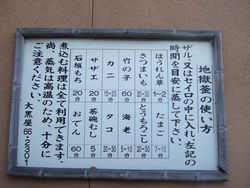 地獄釜の使い方
ザル又はセイロの中に入れ、左記の
時間を目安に蒸して下さい。
ほうれん草 1~2分
たまご 7~10分
さつまいも 20~30分
とうもろこし 20~30分
竹の子 60分
海老 5~10分
カニ 15~20分
タコ 20~30分
サザエ 20分
茶碗むし
石垣もち 20分
おでん 60分
煮込む料理は全て利用できます。
尚、蒸気は高温のため、十分に
ご注意ください。 大黒屋 66-2301